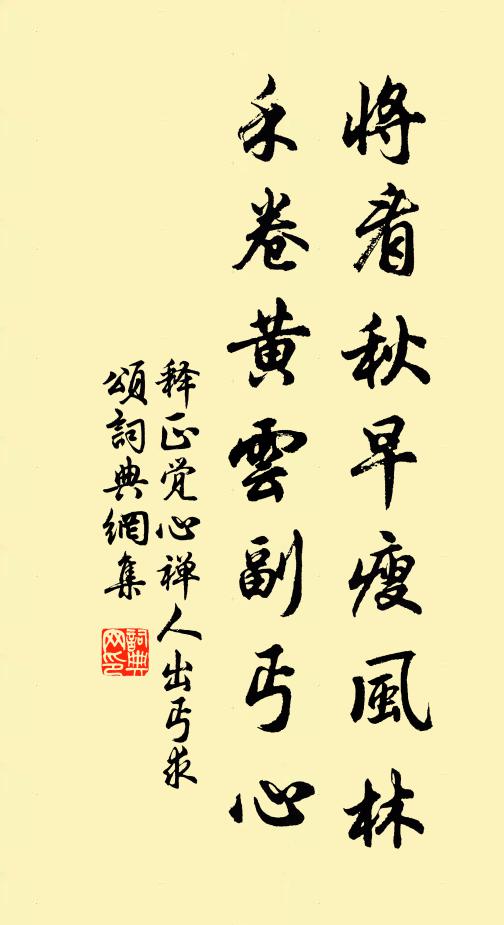 將看秋早瘦風林
禾卷黃雲副丐心
释正觉心禅人出丐求
頌詞典網集
詞典网印